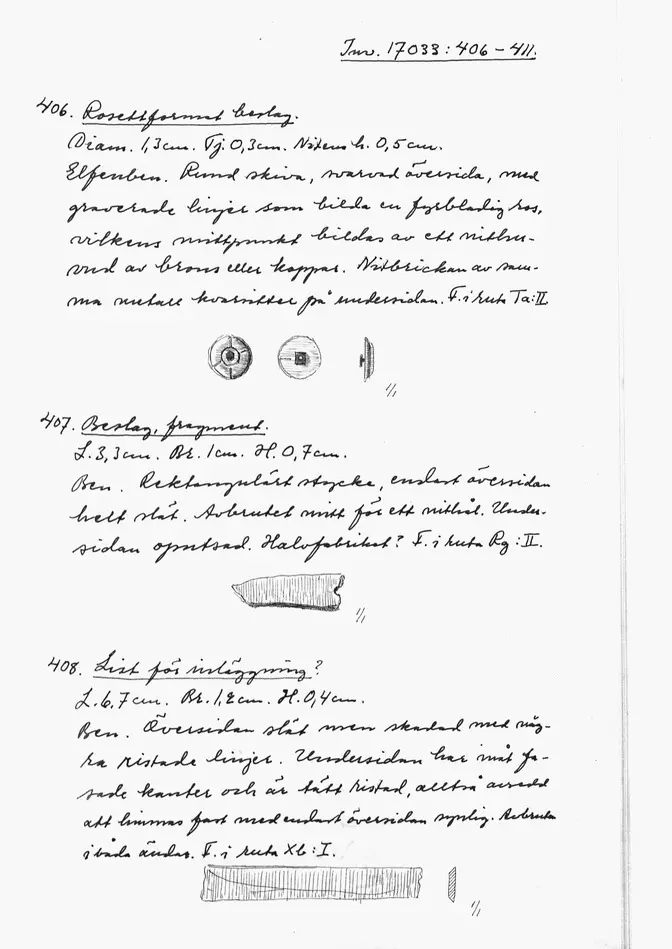 Inv. 17033:406-411.
406. Rosettformat beslag.
Diam. 1,3cm. Tj. 0,3cm. Nitens h. 0,5cm.
Elfenben. Rund skiva, svarvad översida, med
graverade linjer som bilda en fyrbladig ros,
vilkens mittpunkt bildas av ett nithu-
vud av brons eller koppar. Nitbrickan av sam-
ma metall kvarsitter på undersidan. F. i ruta Ta:II
1/1
407. Beslag, fragment.
L.3,3cm. Br.1cm. H.0,7cm.
Ben. Rektangulärt stycke, endast översidan
helt slät. Avbrutet mitt för ett nithål. Under-
sidan oputsad. Halvfabrikat? F. i ruta Rg:II.
1/1
408. List för inläggning?
L.6,7cm. Br.1,2cm. H.0,4cm.
Ben. Översidan slät men skadad med någ-
ra ristade linjer. Undersidan har snåt fa-
sade kanter och är tätt ristad, alltså avsedd
att limmas fast med endast översidan synlig. Avbruten
i båda ändar. F. i ruta Xb:I.
1/1